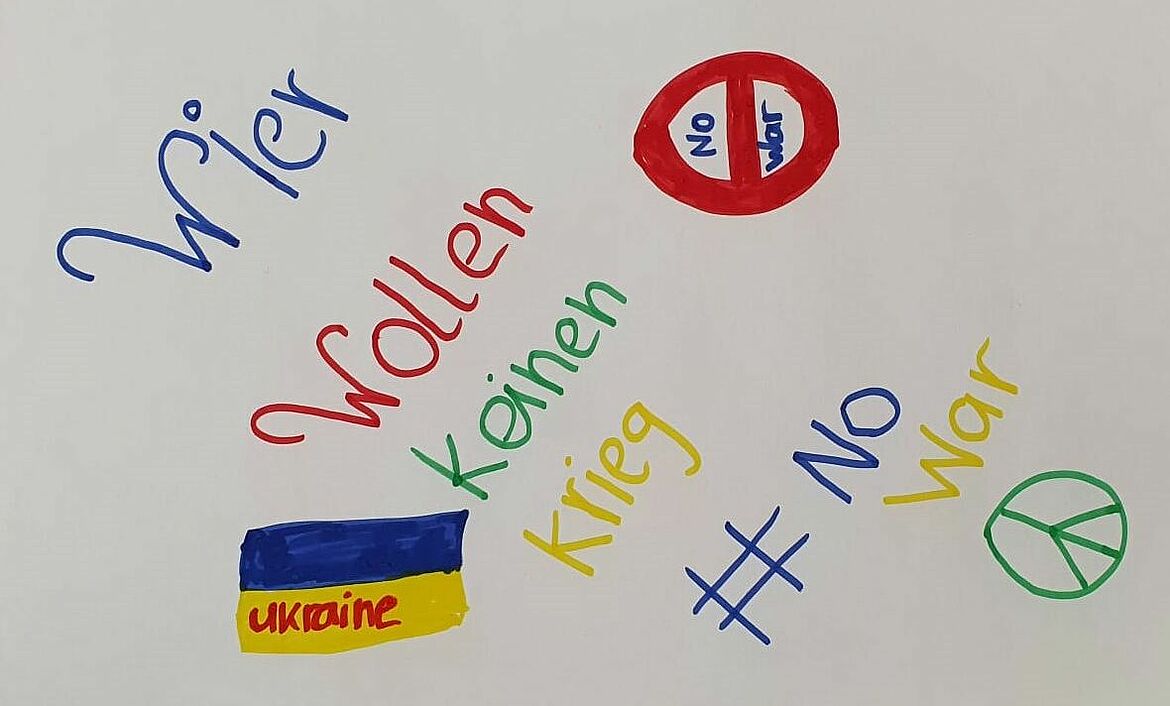 Wier
Wollen
keinen
Krieg
No
war
# No
War
ukraine